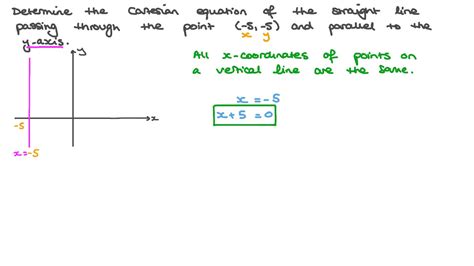 Determine the Cartesian equation of the straight line
passing through the point (-5,-5) and parallel to the
x y
y-axis.
y
All x-coordinates of points on
a vertical line are the same.
x = -5
x + 5 = 0
x
-5
x=-5